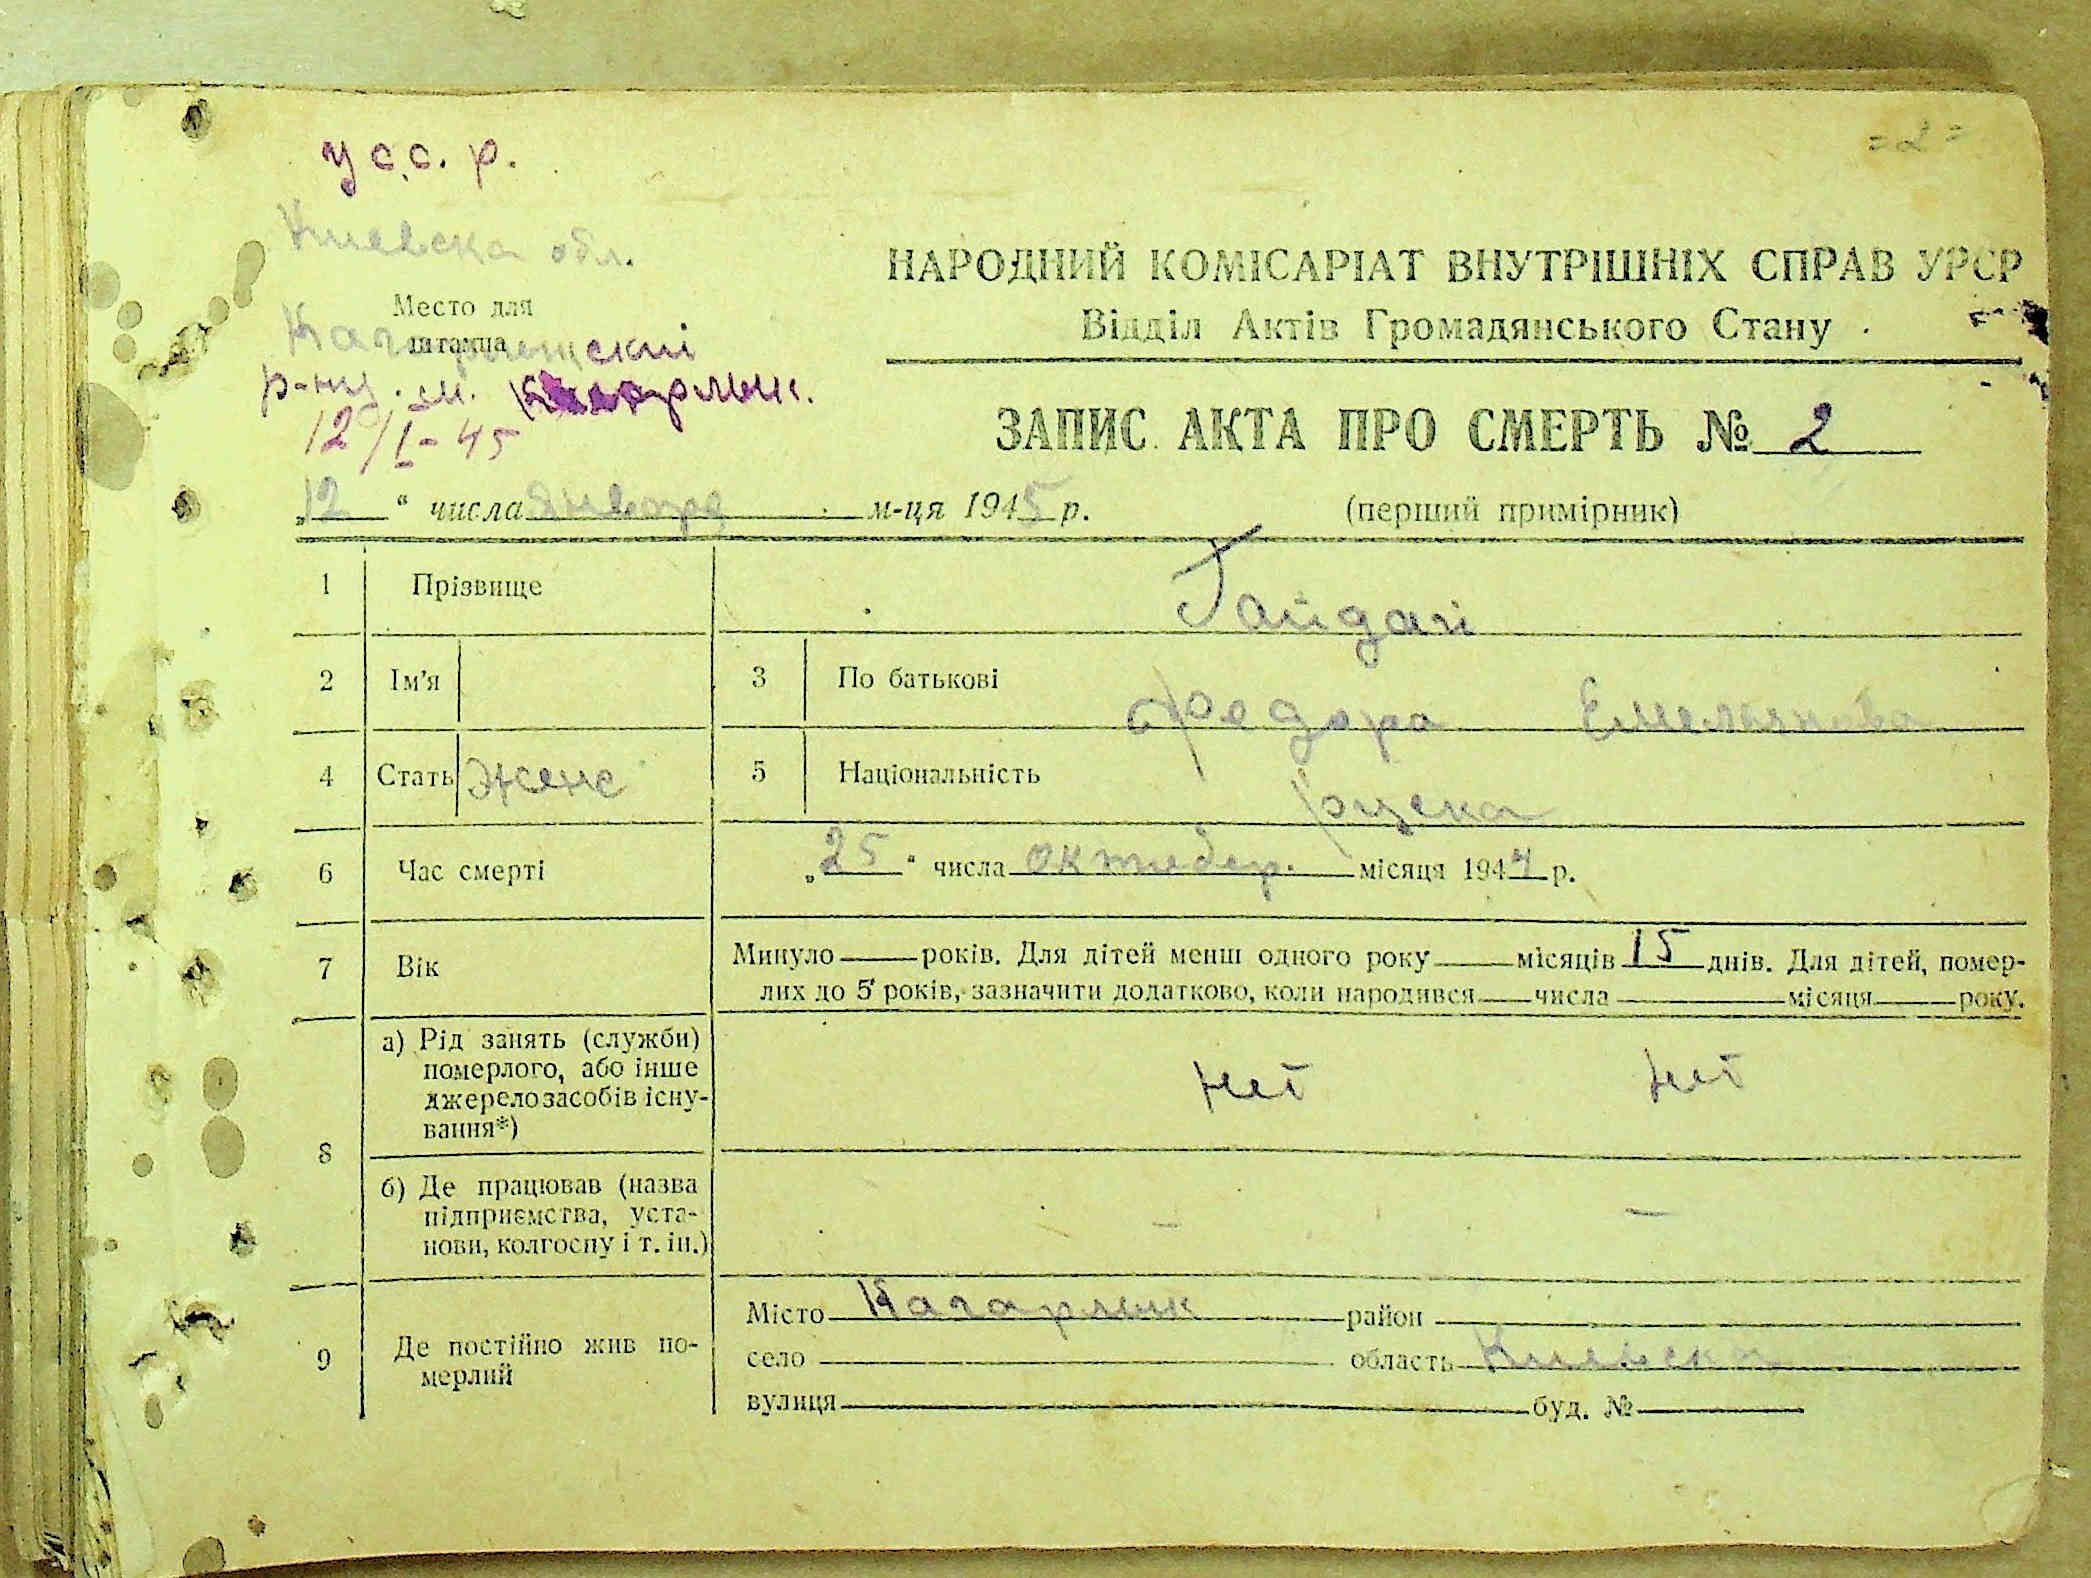 = 2 =
У с.с. р.
Киевска обл.
Место для
штампа
Кагарлыцкий
р-нц. м. Кагарлык.
12/I-45
НАРОДНИЙ КОМІСАРІАТ ВНУТРІШНІХ СПРАВ УРСР
Відділ Актів Громадянського Стану
ЗАПИС АКТА ПРО СМЕРТЬ № 2
„12“ числа января м-ця 1945 р. (перший примірник)
1 Прізвище Гайдай
2 Ім'я 3 По батькові Федора Емельянова
4 Стать Женс 5 Національність руска
6 Час смерті „25“ числа октябр. місяця 1944 р.
7 Вік Минуло років. Для дітей менш одного року місяців 15 днів. Для дітей, помер-
лих до 5 років, зазначити додатково, коли народився числа місяця року.
8 а) Рід занять (служби)
померлого, або інше
джерело засобів існу-
вання*)
нет нет
б) Де працював (назва
підприємства, уста-
нови, колгоспу і т. ін.)
— —
9 Де постійно жив по-
мерлий
Місто Кагарлык район
село область Киевска
вулиця буд. №